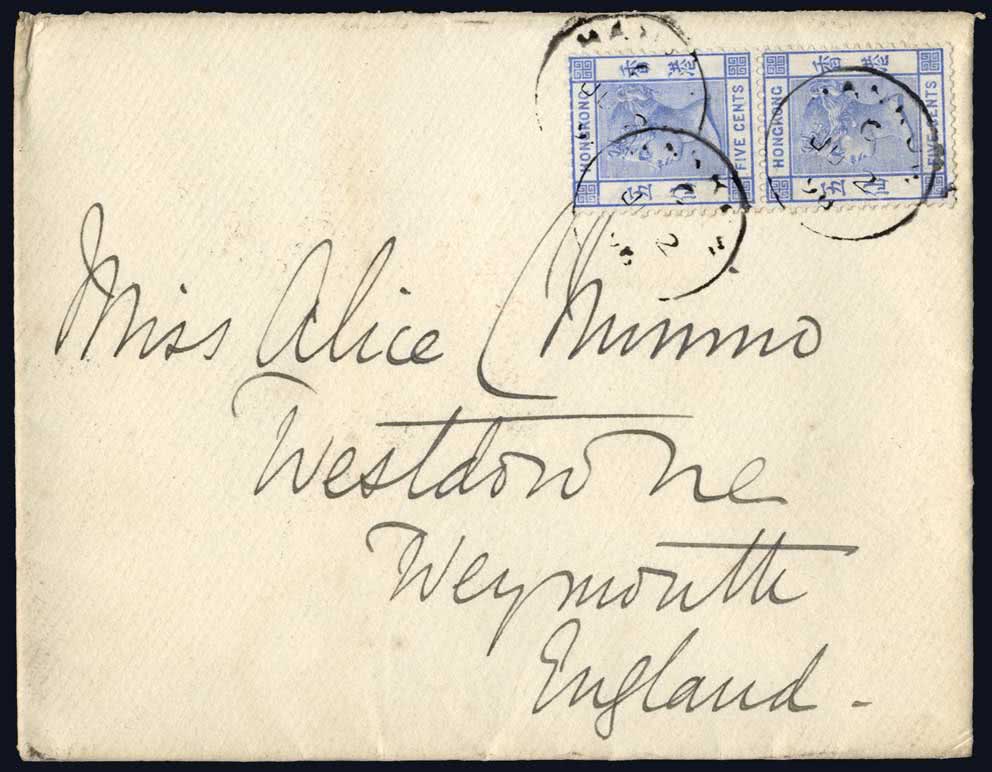 香港
HONGKONG
FIVE CENTS
五仙
香港
HONGKONG
FIVE CENTS
五仙
Miss Alice Chimmo
Westdowne
Weymouth
England -